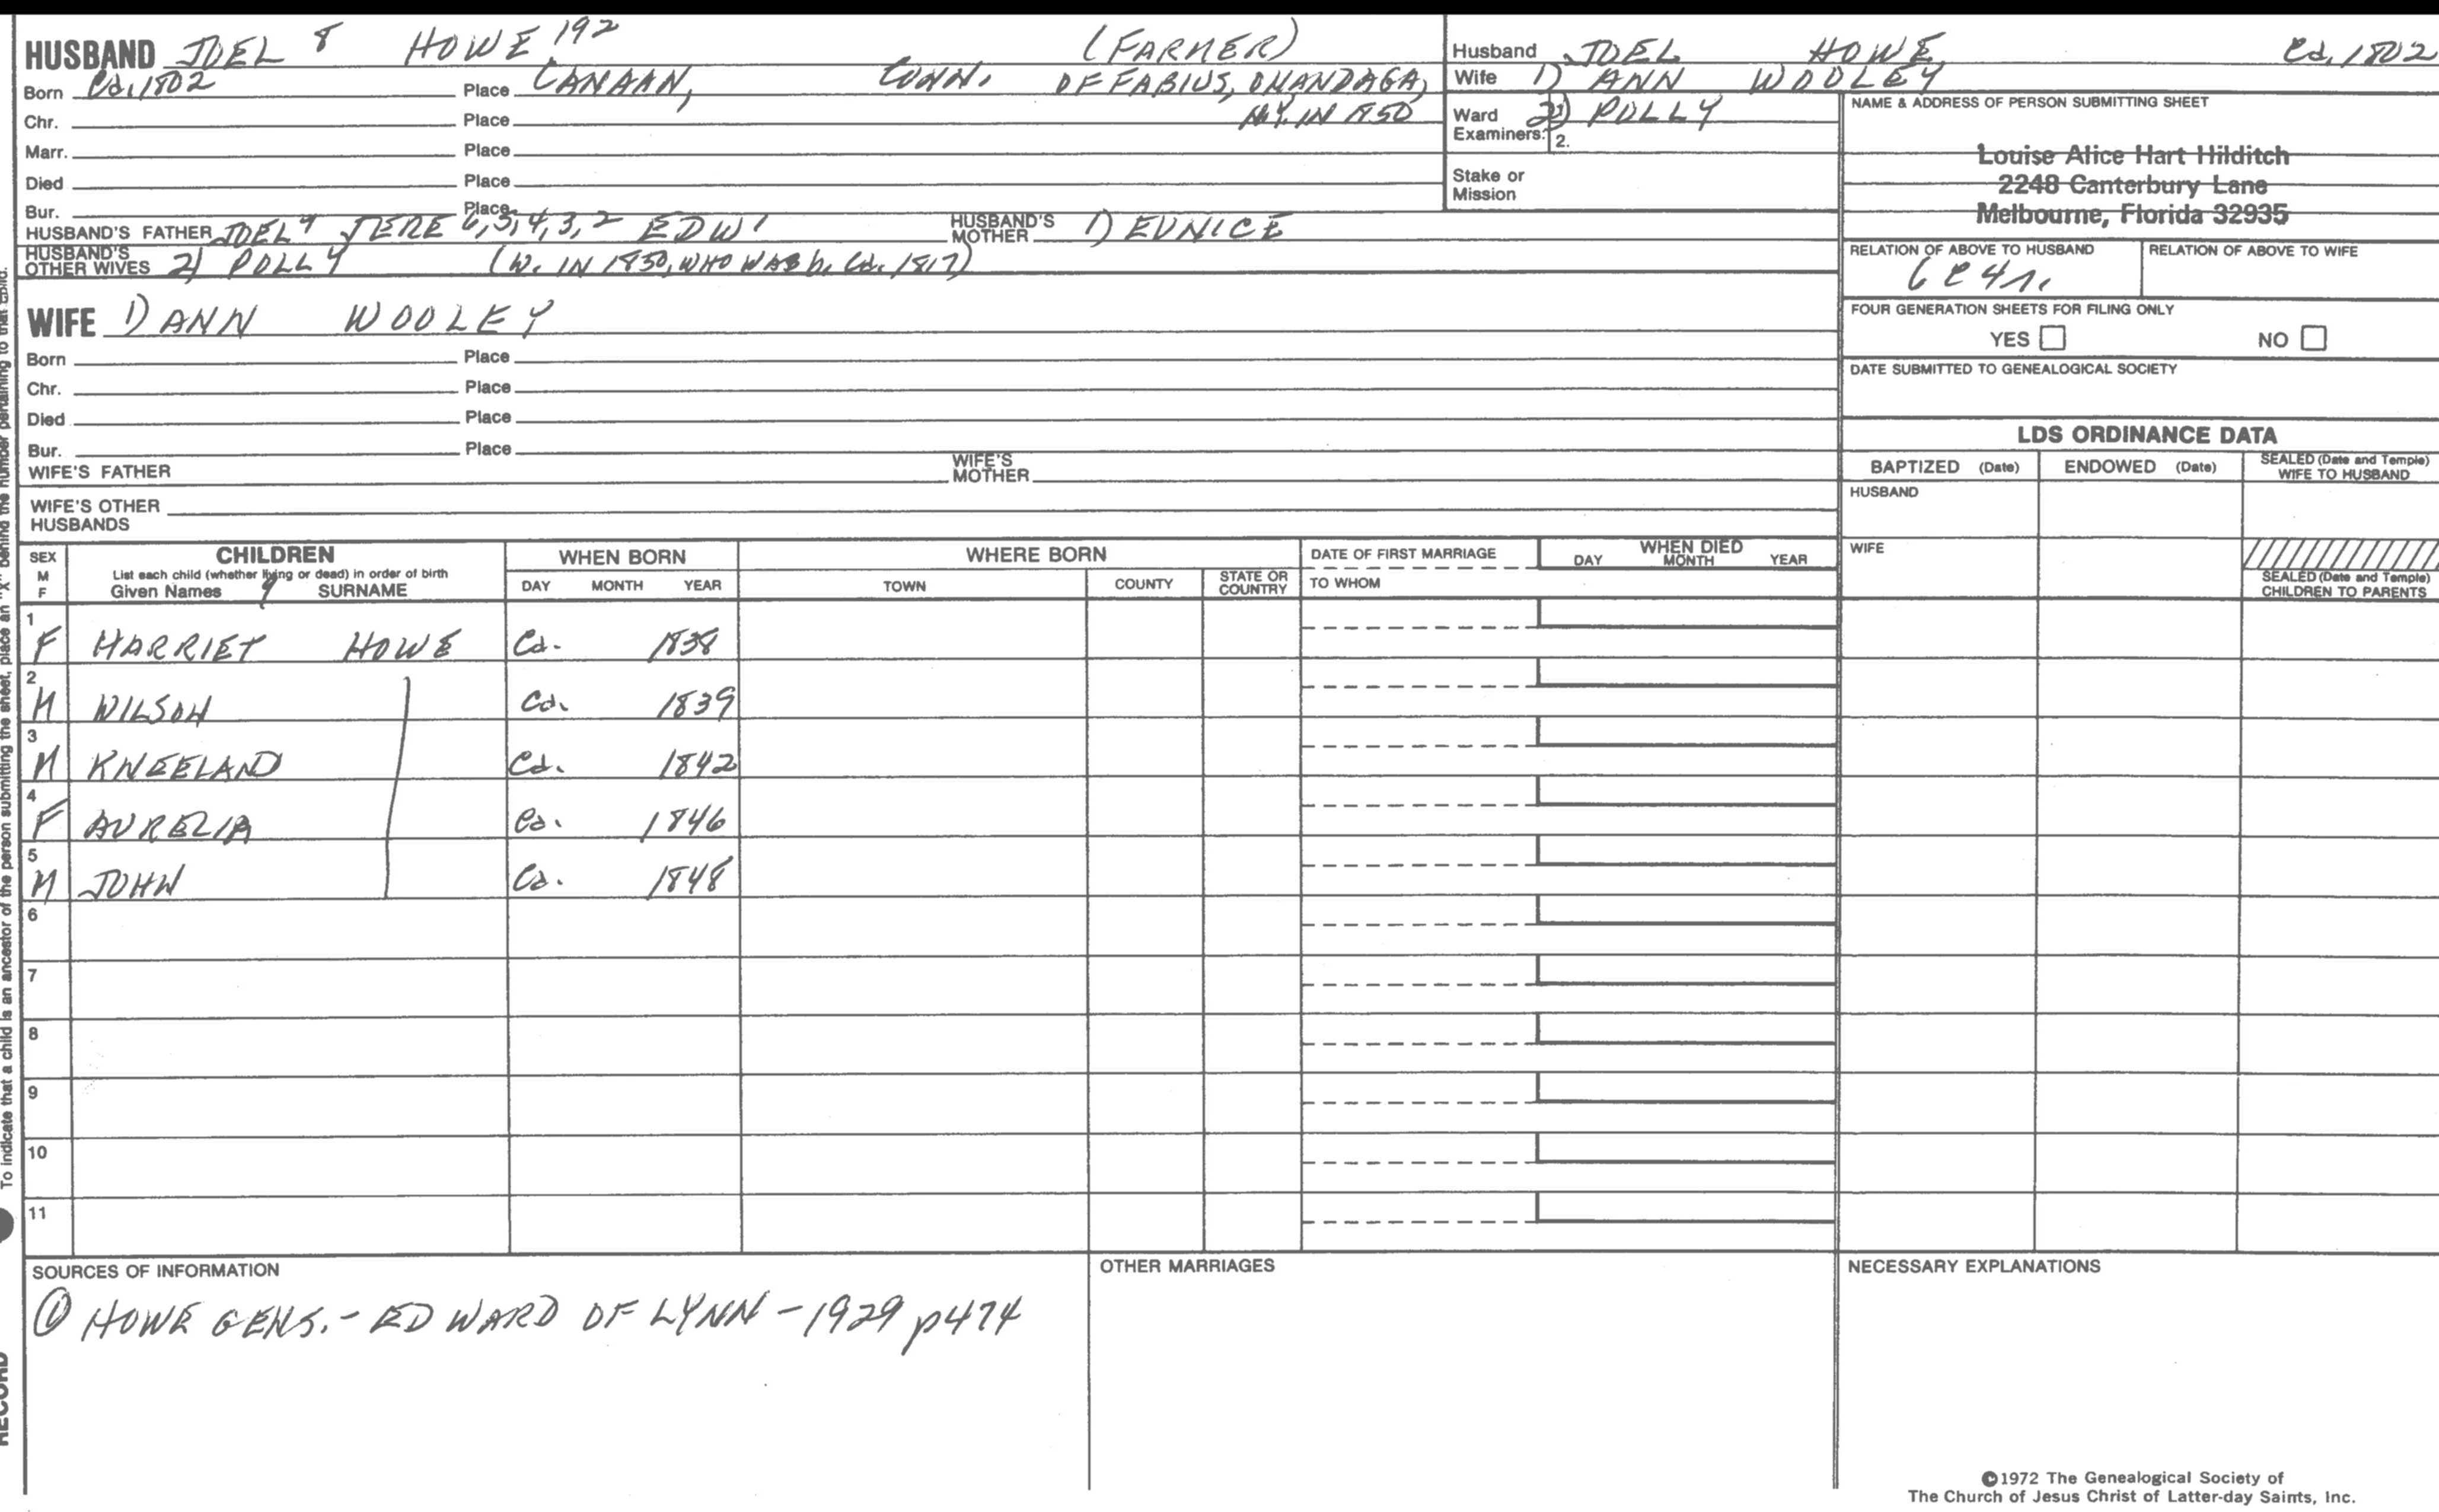 HUSBAND JOEL 8 HOWE 192 (FARMER)
Born Ca. 1802 Place CANAAN, CONN. OF FABIUS, ONANDAGA,
Chr. Place N.Y. IN 1850
Marr. Place
Died Place
Bur. Place
HUSBAND'S FATHER JOEL 7 JERE 6,5,4,3,2 EDW 1 HUSBAND'S MOTHER 1) EUNICE
HUSBAND'S OTHER WIVES 2) POLLY (W. IN 1850, WHO WAS b. Ca. 1817)
WIFE 1) ANN WOOLEY
Born Place
Chr. Place
Died Place
Bur. Place
WIFE'S FATHER WIFE'S MOTHER
WIFE'S OTHER HUSBANDS
Husband JOEL HOWE Ca. 1802
Wife 1) ANN WOOLEY
Ward 2) POLLY
Examiners: 2.
Stake or Mission
NAME & ADDRESS OF PERSON SUBMITTING SHEET
Louise Alice Hart Hilditch
2248 Canterbury Lane
Melbourne, Florida 32935
RELATION OF ABOVE TO HUSBAND RELATION OF ABOVE TO WIFE
6c4r.
FOUR GENERATION SHEETS FOR FILING ONLY
YES NO
DATE SUBMITTED TO GENEALOGICAL SOCIETY
LDS ORDINANCE DATA
BAPTIZED (Date) ENDOWED (Date) SEALED (Date and Temple) WIFE TO HUSBAND
HUSBAND
WIFE
SEALED (Date and Temple) CHILDREN TO PARENTS
SEX M F
CHILDREN
List each child (whether living or dead) in order of birth
Given Names 9 SURNAME
WHEN BORN
DAY MONTH YEAR
WHERE BORN
TOWN COUNTY STATE OR COUNTRY
DATE OF FIRST MARRIAGE
TO WHOM
WHEN DIED
DAY MONTH YEAR
1 F HARRIET HOWE Ca. 1838
2 M WILSON Ca. 1839
3 M KNEELAND Ca. 1842
4 F AURELIA Ca. 1846
5 M JOHN Ca. 1848
6
7
8
9
10
11
SOURCES OF INFORMATION
① HOWE GENS. - EDWARD OF LYNN - 1929 p474
OTHER MARRIAGES
NECESSARY EXPLANATIONS
©1972 The Genealogical Society of
The Church of Jesus Christ of Latter-day Saints, Inc.
To indicate that a child is an ancestor of the person submitting the sheet, place an "X" behind the number pertaining to that child.
RECORD